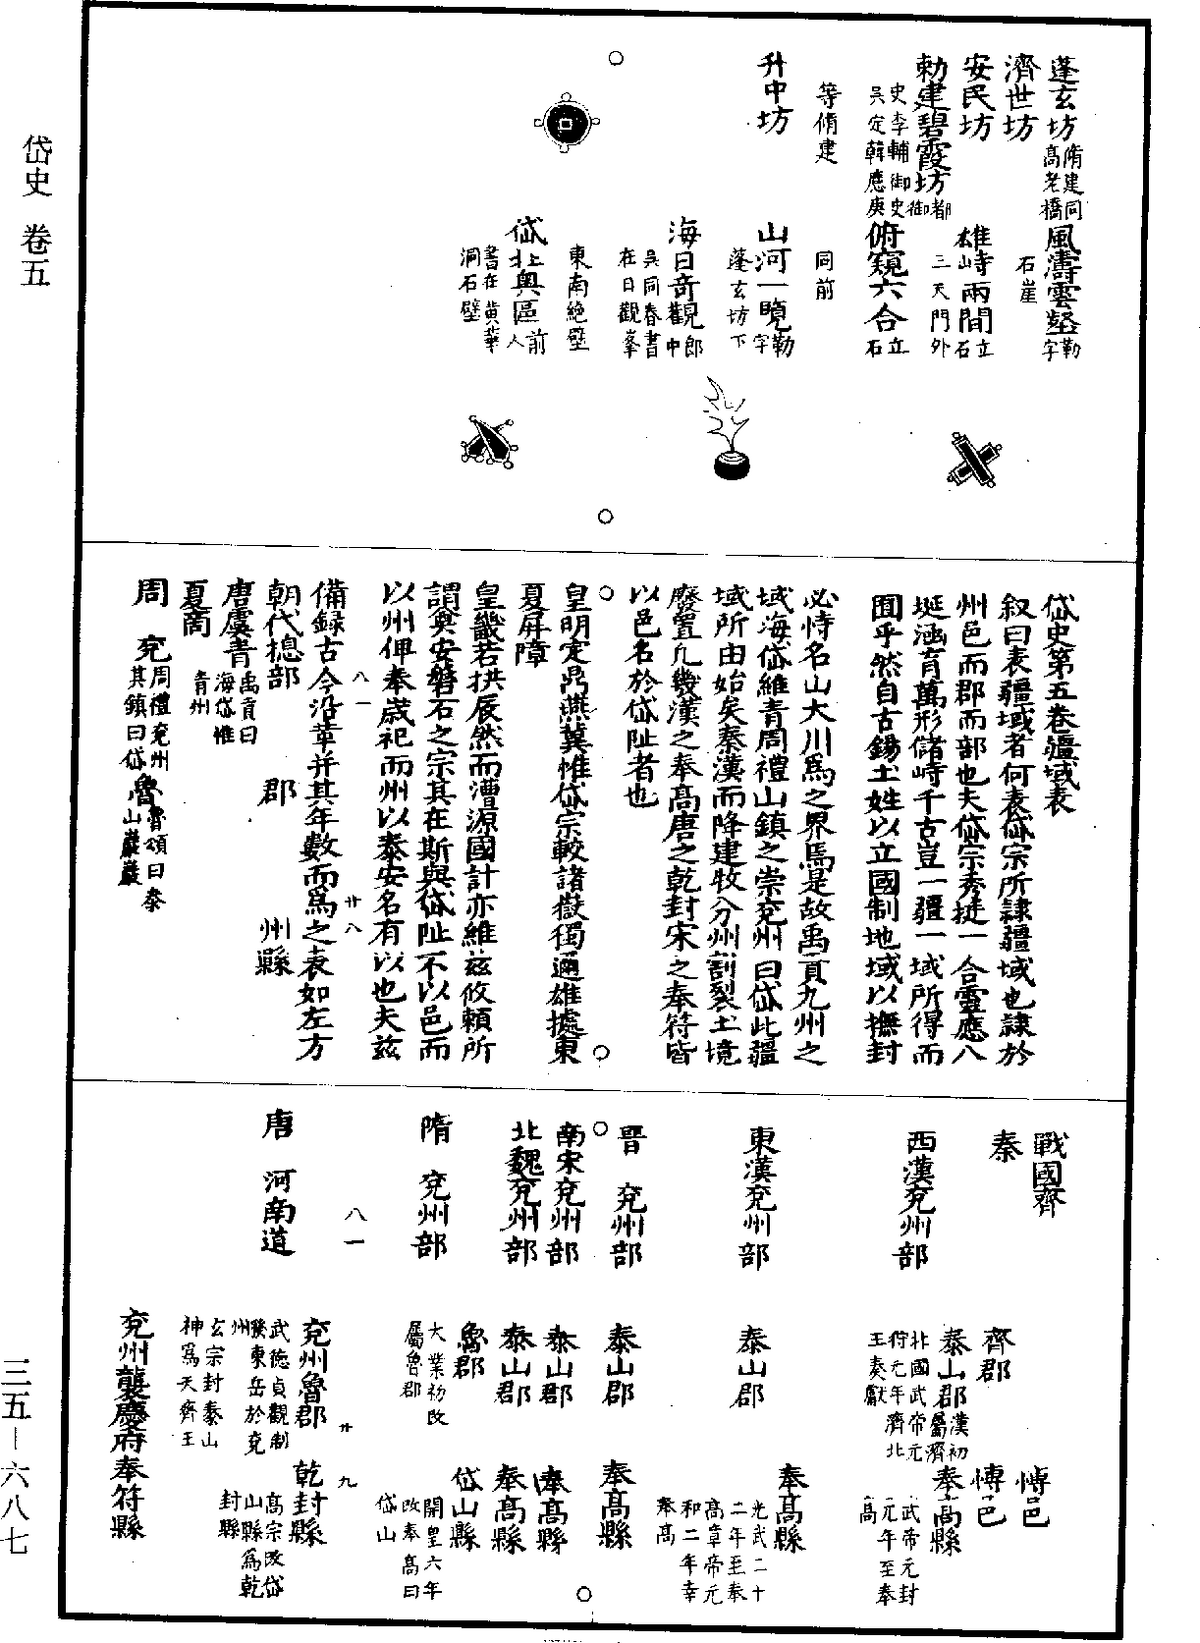 岱史 卷五
蓬玄坊脩建同高老橋 風濤雲壑勒字石崖
濟世坊
安民坊 雄峙兩間立石三天門外
勅建碧霞坊都御史李輔御史吳定韓應庚 俯窺六合立石
等脩建 同前
升中坊 山河一覽勒字蓬玄坊下
海日奇觀郎中吳同春書在日觀峯
東南絶壁
岱北奧區前人書在黄華洞石壁
岱史第五卷疆域表
叙曰表疆域者何表岱宗所隷疆域也隷於
州邑而郡而部也夫岱宗秀挺一合靈應八
埏涵育萬形儲峙千古豈一疆一域所得而
囿乎然自古錫土姓以立國制地域以撫封
必恃名山大川爲之界焉是故禹貢九州之
域海岱維青周禮山鎮之崇兖州曰岱此疆
域所由始矣秦漢而降建牧分州割裂土境
廢置凡幾漢之奉高唐之乾封宋之奉符皆
以邑名於岱阯者也
皇明定鼎燕冀惟岱宗較諸嶽獨邇雄據東
夏屏障
皇畿若拱辰然而漕源國計亦維兹攸賴所
謂奠安磐石之宗其在斯與岱阯不以邑而
以州俾奉歲祀而州以泰安名有以也夫兹
備録古今沿革并其年數而爲之表如左方
朝代總部 郡 州縣
唐虞青禹貢曰海岱惟青州
夏商
周 兖周禮兖州其鎮曰岱 魯魯頌曰泰山巖巖
八一
廿八
戰國齊 博邑
秦 齊郡 博邑
西漢兖州部 泰山郡漢初屬濟北國武帝元狩元年濟北王奏獻 奉高縣武帝元封元年至奉高
東漢兖州部 泰山郡 奉高縣光武二十二年至奉高章帝元和二年幸奉高
晋 兖州部 泰山郡 奉高縣
南宋兖州部 泰山郡 奉高縣
北魏兖州部 泰山郡 奉高縣
隋 兖州部 魯郡大業初改屬魯郡 岱山縣開皇六年改奉高曰岱山
八一
廿九
唐 河南道 兖州魯郡武德貞觀制𤼵東岳於兖州玄宗封泰山神爲天齊王 乾封縣高宗改岱山縣爲乾封縣
兖州襲慶府奉符縣
三五—六八七